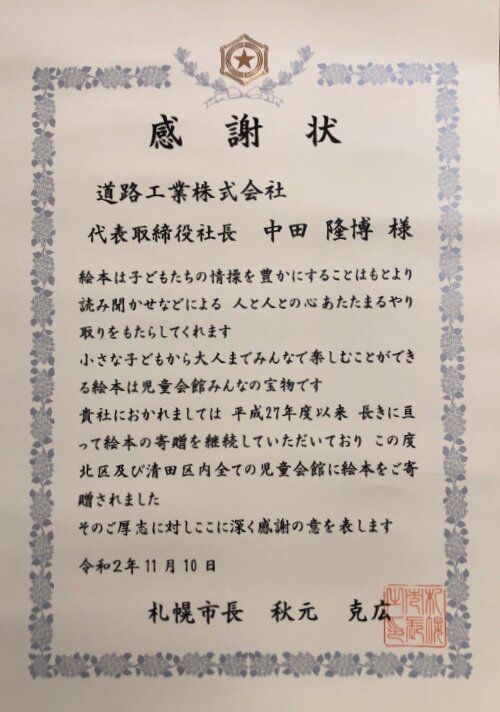 感謝状
道路工業株式会社
代表取締役社長 中田 隆博 様
絵本は子どもたちの情操を豊かにすることはもとより
読み聞かせなどによる 人と人との心あたたまるやり
取りをもたらしてくれます
小さな子どもから大人までみんなで楽しむことができ
る絵本は児童会館みんなの宝物です
貴社におかれましては 平成27年度以来 長きに亘
って絵本の寄贈を継続していただいており この度
北区及び清田区内全ての児童会館に絵本をご寄
贈されました
そのご厚志に対しここに深く感謝の意を表します
令和2年11月10日
札幌市長 秋元 克広
札幌市長之印